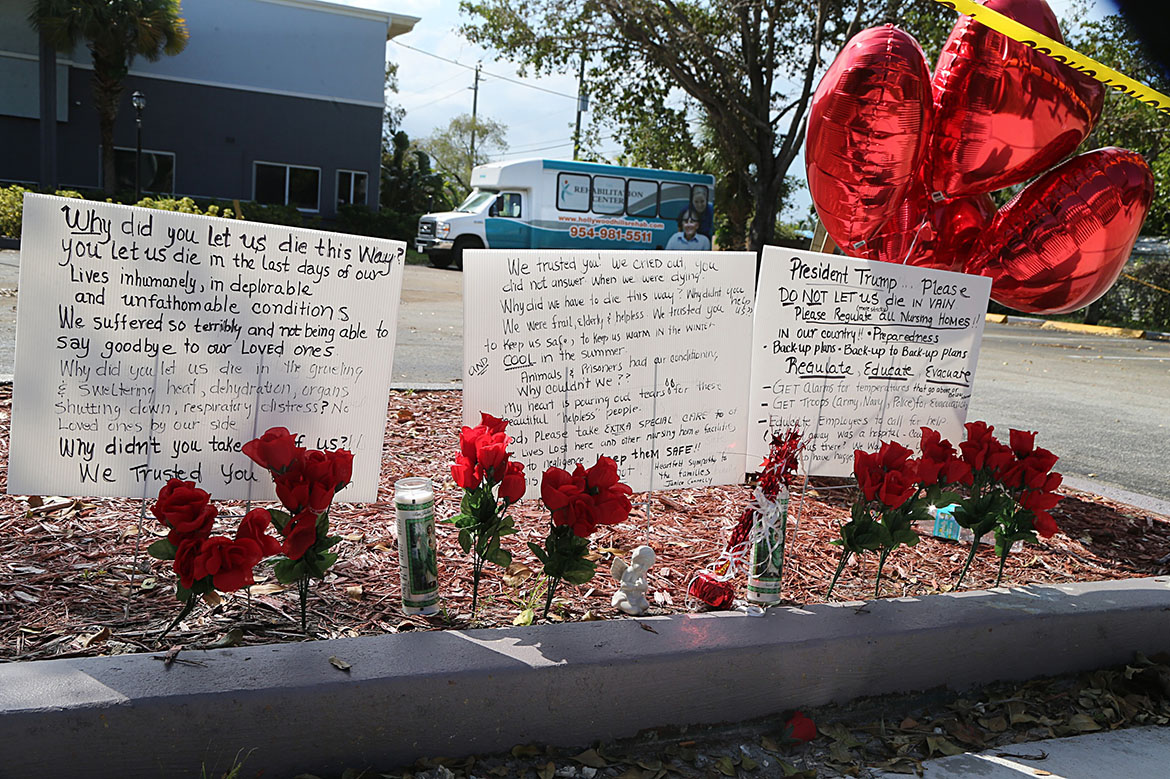 Why did you let us die this Way?
you let us die in the last days of our
Lives inhumanely, in deplorable
and unfathomable conditions
We suffered so terribly and not being able to
say goodbye to our Loved ones
Why did you let us die in the grueling
& sweltering heat, dehydration, organs
Shutting down, respiratory distress? No
Loved ones by our side
Why didn't you take of us?!!
We Trusted you
We trusted you! We cried out you
did not answer when we were dying!
Why did we have to die this way? Why didn't you
We were frail, elderly & helpless We trusted you help us?
to Keep us safe, to Keep us warm in the winter
and COOL in the summer
Animals & Prisoners had air conditioning
Why couldn't We??
my heart is pouring out tears for these
beautiful helpless people.
Please take EXTRA SPECIAL CARE to of
Lives Lost here and other nursing home facilities
keep them SAFE!!
Heartfelt sympathy to
the families
Janice Connelly
President Trump... Please
DO NOT LET us die in VAIN
Please Regulate all Nursing Homes!!
in our country!! • Preparedness
• Back-up plans • Back-up to Back-up plans
Regulate, Educate, Evacuate
- GET Alarms for temperatures that go above or below
- GET Troops (Army, Navy, Police) for Evacuation
- Educate Employees to call for help
away was a hospital
there? We
REHABILITATION
CENTER
www.hollywoodhillsrehab.com
954-981-5511